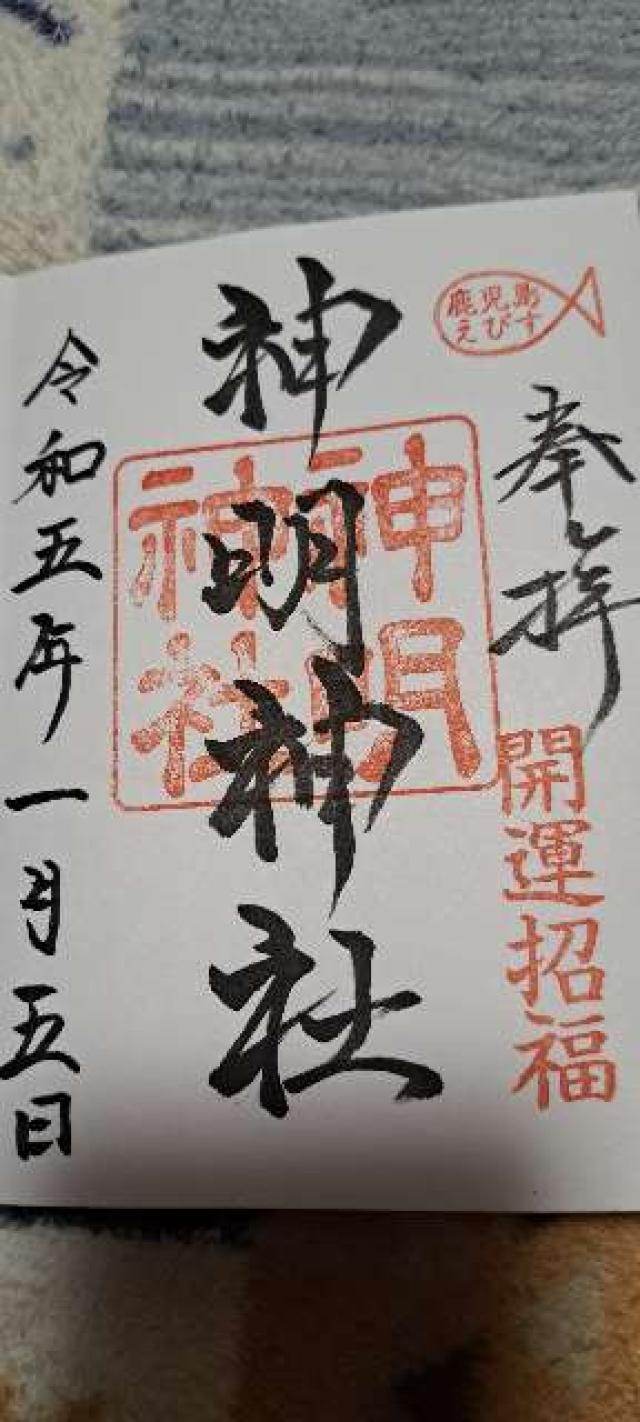 鹿児島
えびす
奉拝
開運招福
神明神社
神明
神社
令和五年一月五日